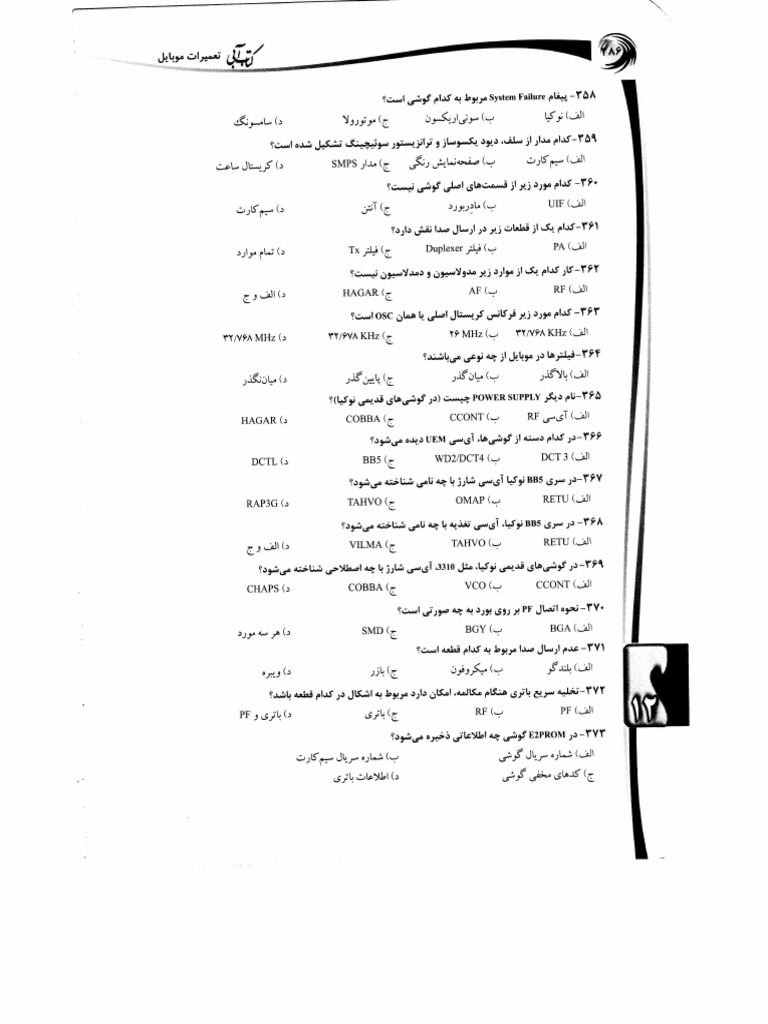 ۷۸۶
کتاب آبی تعمیرات موبایل
۳۵۸- پیغام System Failure مربوط به کدام گوشی است؟
الف) نوکیا ب) سونی‌اریکسون ج) موتورولا د) سامسونگ
۳۵۹-کدام مدار از سلف، دیود یکسوساز و ترانزیستور سوئیچینگ تشکیل شده است؟
الف) سیم‌کارت ب) صفحه‌نمایش رنگی ج) مدار SMPS د) کریستال ساعت
۳۶۰- کدام مورد زیر از قسمت‌های اصلی گوشی نیست؟
الف) UIF ب) مادربورد ج) آنتن د) سیم‌کارت
۳۶۱-کدام یک از قطعات زیر در ارسال صدا نقش دارد؟
الف) PA ب) فیلتر Duplexer ج) فیلتر Tx د) تمام موارد
۳۶۲- کار کدام یک از موارد زیر مدولاسیون و دمدلاسیون نیست؟
الف) RF ب) AF ج) HAGAR د) الف و ج
۳۶۳- کدام مورد زیر فرکانس کریستال اصلی یا همان OSC است؟
الف) ۳۲/۷۶۸ KHz ب) ۲۶ MHz ج) ۳۲/۶۷۸ KHz د) ۳۲/۷۶۸ MHz
۳۶۴-فیلترها در موبایل از چه نوعی می‌باشند؟
الف) بالاگذر ب) میان‌گذر ج) پایین‌گذر د) میان‌نگذر
۳۶۵-نام دیگر POWER SUPPLY چیست (در گوشی‌های قدیمی نوکیا)؟
الف) آی‌سی RF ب) CCONT ج) COBBA د) HAGAR
۳۶۶-در کدام دسته از گوشی‌ها، آی‌سی UEM دیده می‌شود؟
الف) DCT 3 ب) WD2/DCT4 ج) BB5 د) DCTL
۳۶۷-در سری BB5 نوکیا آی‌سی شارژ با چه نامی شناخته می‌شود؟
الف) RETU ب) OMAP ج) TAHVO د) RAP3G
۳۶۸- در سری BB5 نوکیا، آی‌سی تغذیه با چه نامی شناخته می‌شود؟
الف) RETU ب) TAHVO ج) VILMA د) الف و ج
۳۶۹-در گوشی‌های قدیمی نوکیا، مثل 3310، آی‌سی شارژ با چه اصطلاحی شناخته می‌شود؟
الف) CCONT ب) VCO ج) COBBA د) CHAPS
۳۷۰- نحوه اتصال PF بر روی بورد به چه صورتی است؟
الف) BGA ب) BGY ج) SMD د) هر سه مورد
۳۷۱- عدم ارسال صدا مربوط به کدام قطعه است؟
الف) بلندگو ب) میکروفون ج) بازر د) ویبره
۳۷۲-تخلیه سریع باتری هنگام مکالمه، امکان دارد مربوط به اشکال در کدام قطعه باشد؟
الف) PF ب) RF ج) باتری د) باتری و PF
۳۷۳- در E2PROM گوشی چه اطلاعاتی ذخیره می‌شود؟
الف) شماره سریال گوشی ب) شماره سریال سیم‌کارت
ج) کدهای مخفی گوشی د) اطلاعات باتری
۱۲